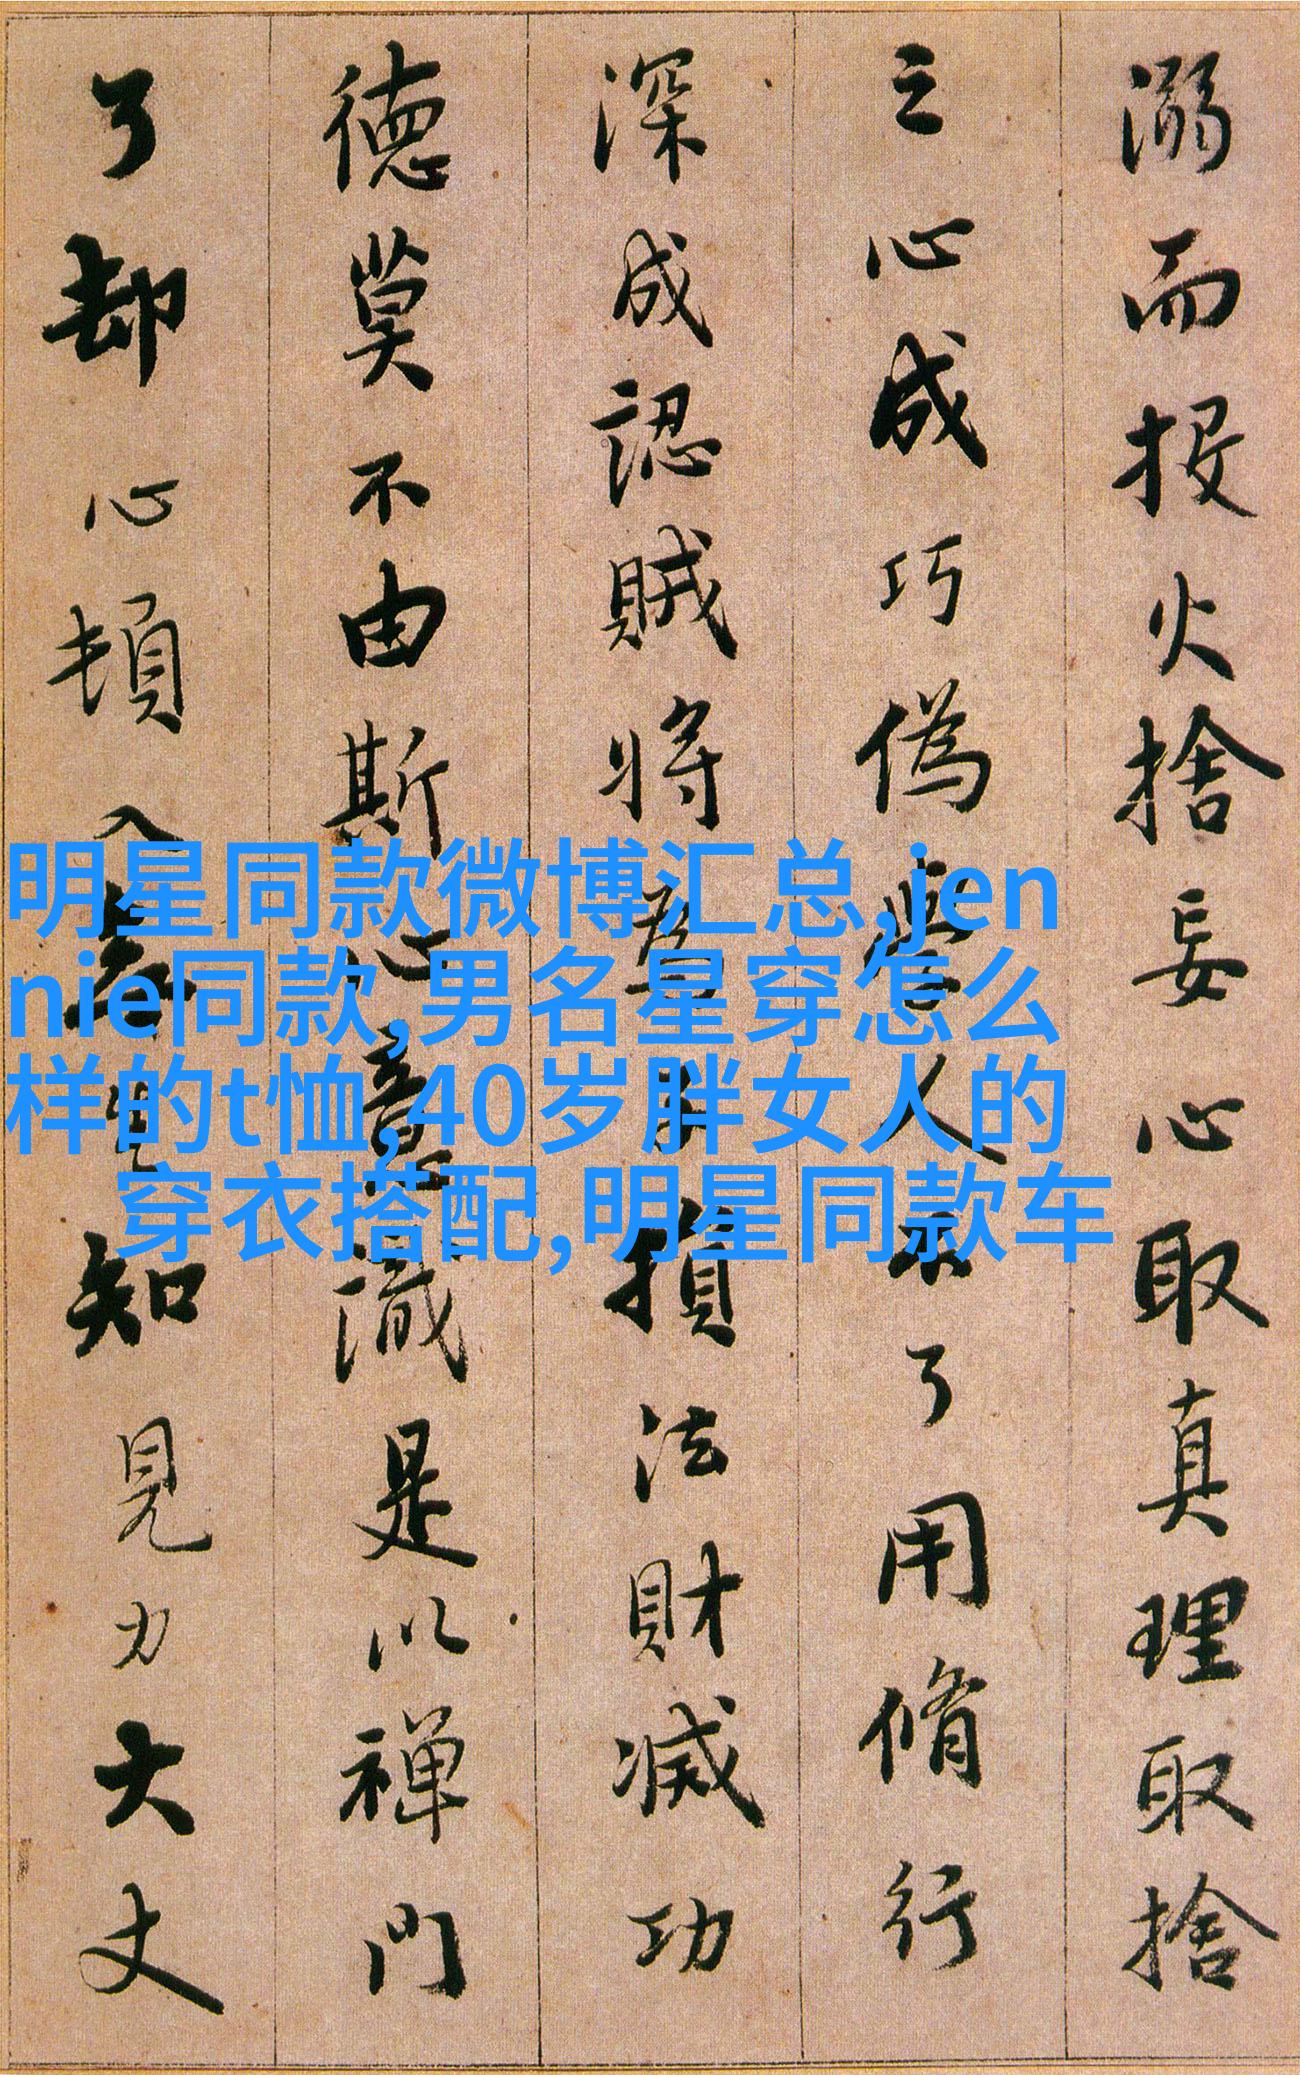 溺而投火捨妄心取真理取捨
之心成巧偽學人不了用脩行
深成認賊將為子損法財滅功
德莫不由斯心意識是以禪門
了却心頓入無生知見力大丈
明星同款微博汇总,jen
nie同款,男名星穿怎么
样的t恤,40岁胖女人的
穿衣搭配,明星同款车